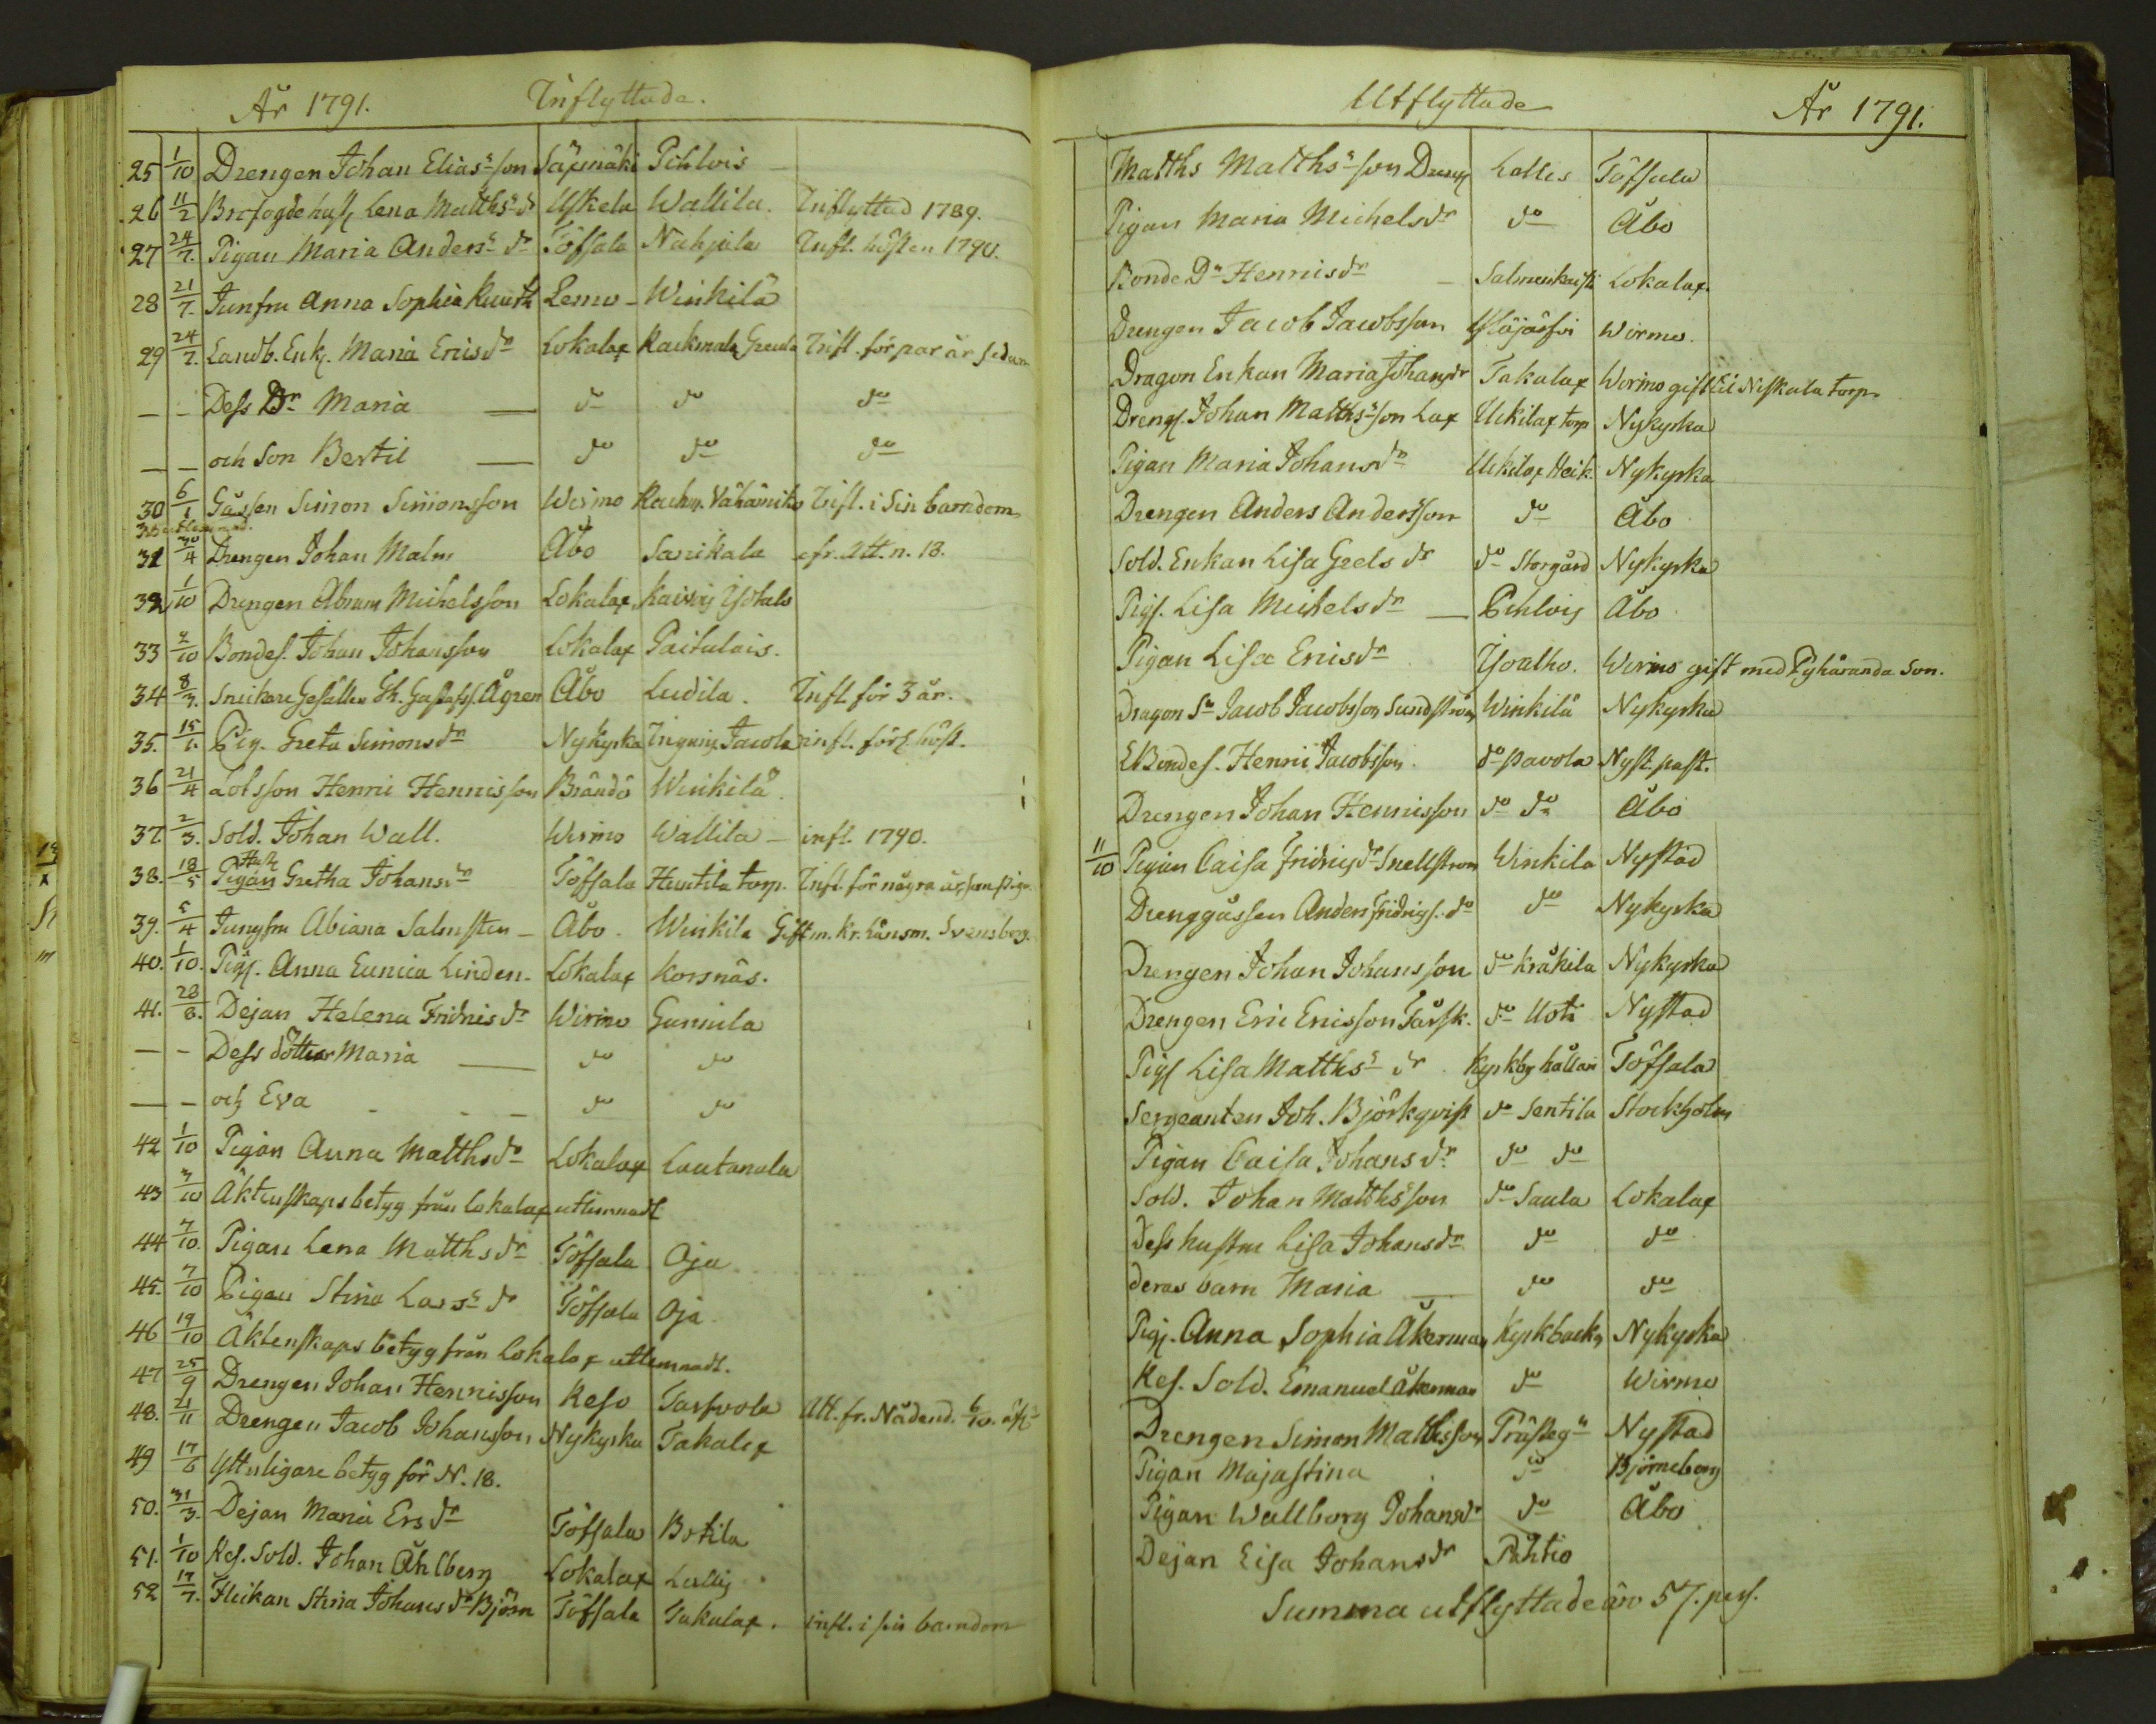 År 1791. Inflyttade.
25 1/10 Drengen Johan Elias's son Säpmäki Pohlois
26 11/2 Brofogde hust. Lena Matths's dr Uskela Wallila. Inflyttad 1789.
27 24/7. Pigan Maria Anders's dr Töfsala Nahjala Infl. hösten 1790.
28 21/7. Junfru Anna Sophia Ruuth Lemo - Winkilä
29 24/7. Landb. Enk. Maria Ericsdr Lokalax Raekmala Greula Infl. för par år sedan
— - Dess Dr Maria — do do do
— — och Son Bertil — do do do
30 6/1 Gåssen Simon Simonsson Wirmo Rachm. Vähämiko Infl. i Sin barndom
31 30/4 Drengen Johan Malm Åbo Sarikala cfr. Att. n. 18.
32 1/10 Drengen Abram Michelsson Lokalax Kaivis Isotalo
33 2/10 Bondes. Johan Johansson Lokalax Paitulais.
34 8/3. Snickare Gesällen Gh. Gustafss. Ågren Åbo Ludila. Infl. för 3 år.
35. 15/1. Pig. Greta Simonsdr Nykyrka Inguris Jacola infl. förl. höst.
36 21/4 Lotsson Henric Henricsson Brändö Winkilä.
37. 2/3. Sold. Johan Wall. Wirmo Wallila - infl. 1790.
38. 18/5 Hust. Pigan Gretha Johansdr Töfsala Huntila torp. Infl. för några år som piga.
39. 5/4 Jungfru Abiana Salmsten - Åbo. Winkila Gift m. Kr. Länsm. Svensberg.
40. 1/10. Pig. Anna Eunica Linden - Lokalax Korsnäs.
41. 28/8. Dejan Helena Fridricsdr Wirmo Gunnila
— - Dess dötter Maria — do do
— - och Eva - - - do do
42 1/10 Pigan Anna Matthsdr Lokalax Lautanala
43 3/10 Äktenskaps betyg från Lokalax utlemnadt
44 7/10. Pigan Lena Matthsdr Töfsala Oja
45. 7/10 Pigan Stina Lars's dr Töfsala Oja.
46 19/10 Äktenskaps betyg från Lokalax utlemnadt.
47 25/9 Drengen Johan Henricsson Reso Tarsvola Att. fr. Nådend. 6/10.
48. 21/11 Drengen Jacob Johansson Nykyrka Takalax
49 17/6 Ytterligare betyg för N. 18.
50. 31/3. Dejan Maria Ersdr Töfsala Botila
51. 1/10 Ref. Sold. Johan Åhlberg Lokalax Lallis
52 17/7. Flickan Stina Johansdr Björn Töfsala Takalax. infl. i sin barndom
Utflyttade År 1791.
Matths Matths's son Dreng Lallis Töfsala
Pigan Maria Michelsdr do Åbo
Bonde Dr Henricsdr - Salmenkaisti Lokalax.
Drengen Jacob Jacobsson Ylöjärfvi Wirmo.
Dragon Enkan Maria Johansdr Takalax Wirmo gift til Niskala torp.
Dreng. Johan Matths's son Lax Uckilax torp Nykyrka
Pigan Maria Johansdr Uckilax Heik. Nykyrka
Drengen Anders Andersson do Åbo
Sold. Enkan Lisa Grelsdr do Storgård Nykyrka
Pig. Lisa Michelsdr — Pohlois Åbo
Pigan Lisa Ericsdr Isoalho. Wirmo gift med Pyhäranda Son.
Dragon Sn Jacob Jacobsson Sundström Winkilä Nykyrka
Bondes. Henric Jacobsson. do pavola Nyst. past.
Drengen Johan Henricsson do do Åbo
11/10 Pigan Caisa Fridricsdr Snellström Winkila Nystad
Drenggåssen Anders Fridrigs. do do Nykyrka
Drengen Johan Johansson do Kråkila Nykyrka
Drengen Eric Ericsson Tårsk. do Uoti Nystad
Pig. Lisa Matths's dr Kyrkby hållari Töfsala
Sergeanten Joh. Björkqvist do Sentila Stockholm
Pigan Caisa Johansdr. do do
Sold. Johan Matths'son do Saula Lokalax
dess hustru Lisa Johansdr do do
deras barn Maria — do do
Pig. Anna Sophia Åkerman Kyrkbacka Nykyrka
Ref. Sold. Emanuel Åkerman do Wirmo
Drengen Simon Mathsson Prästegn Nystad
Pigan Majastina do Björneborg
Pigan Wallborg Johansdr do Åbo
Dejan Lisa Johansdr Pahtio
Summa utflyttade äro 57. pers.